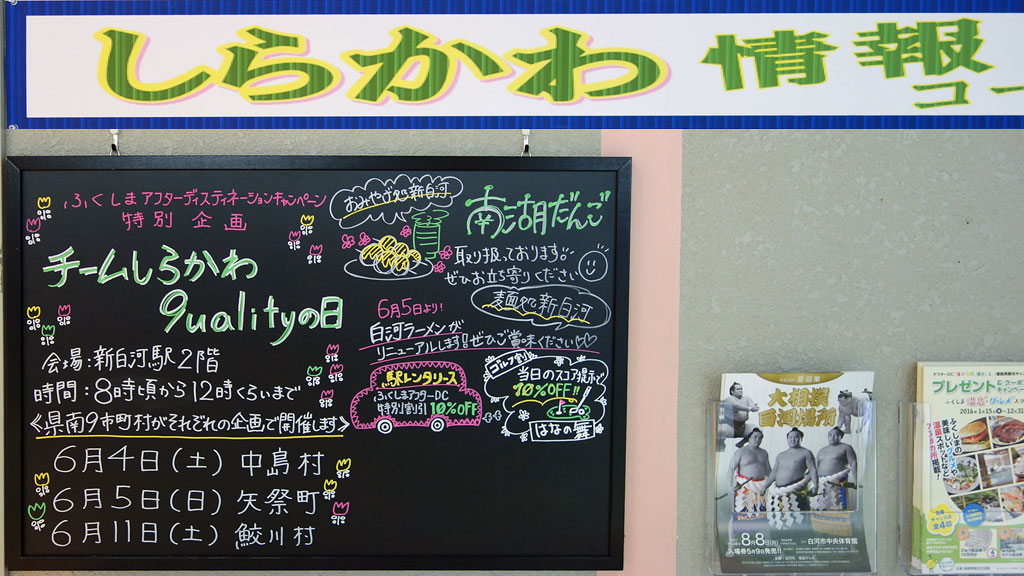 しらかわ 情報
コー
ふくしまアフターディスティネーションキャンペーン
特別企画
チームしらかわ
9ualityの日
会場:新白河駅2階
時間:8時頃から12時くらいまで
《県南9市町村がそれぞれの企画で開催します》
6月4日(土) 中島村
6月5日(日) 矢祭町
6月11日(土) 鮫川村
おみやげ処新白河
南湖だんご
取り扱っております!
ぜひお立ち寄りください
麺処新白河
6月5日より!
白河ラーメンが
リニューアルします!ぜひご賞味ください♡♡
駅レンタリース
ふくしまアフターDC
特別割引 10%OFF
ゴルフ割
当日のスコア提示で
10%OFF!!
はなの舞
大相撲
白河場所
8月8日(月)
白河市中央体育館
入場券5月9日発売!!
プレゼント
キャンペーン
ふくしま
2016▶1月15日
12▶31
ふくしまの
美味しいグルメや
温泉スポットなど
738カ所掲載!
チャンスは
全4回